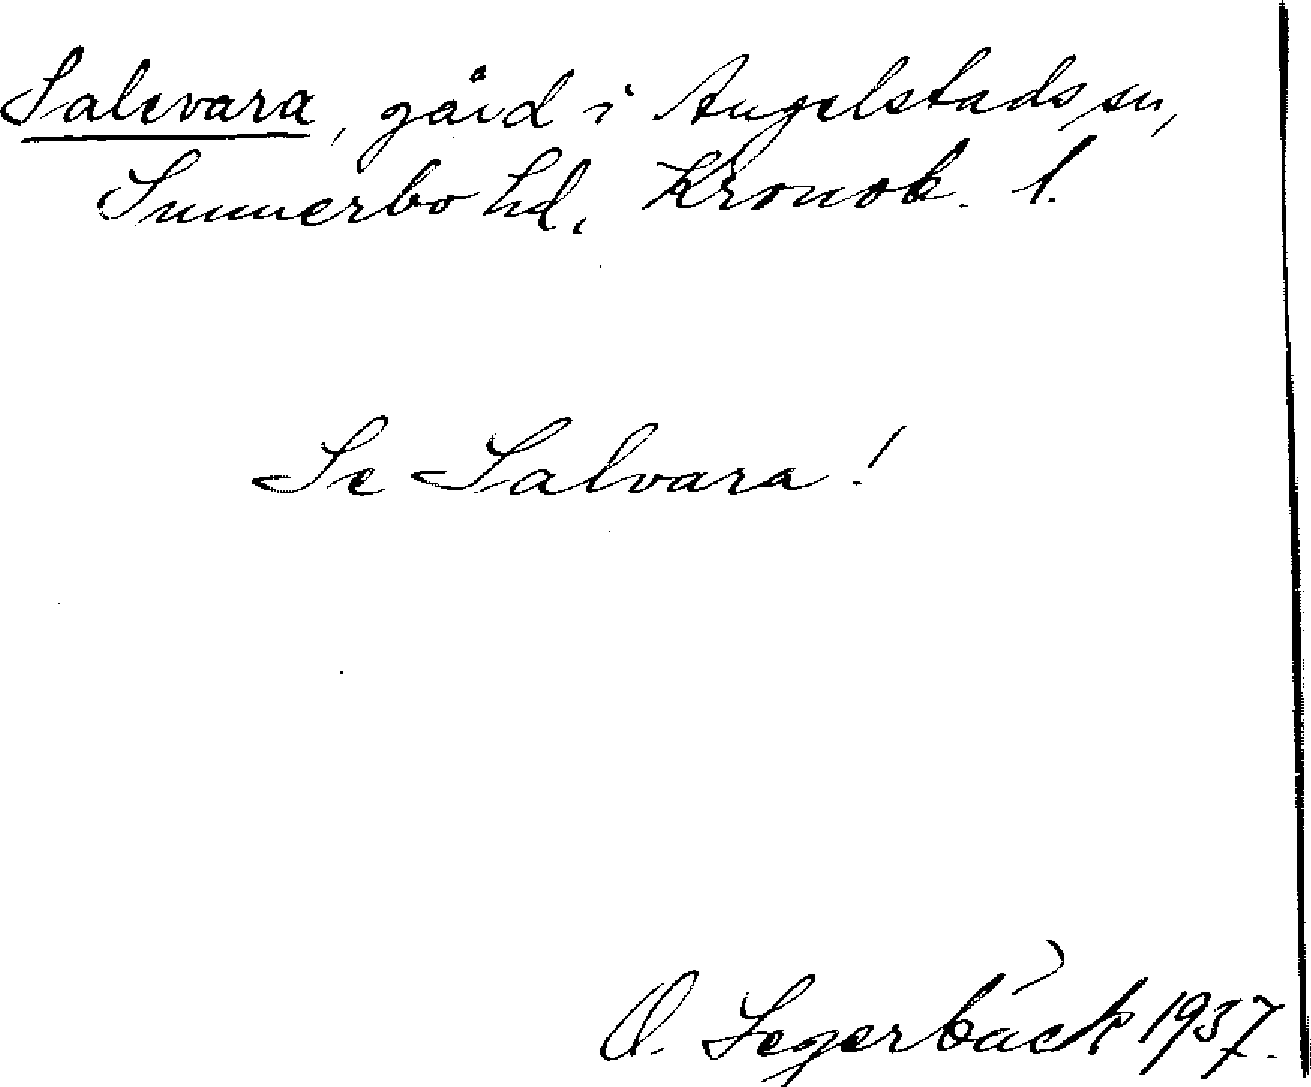 Salevara, gård i Angelstads sn,
Sunnerbo hd, Kronob. l.
Se Salvara!
O. Segerbäck 1937.